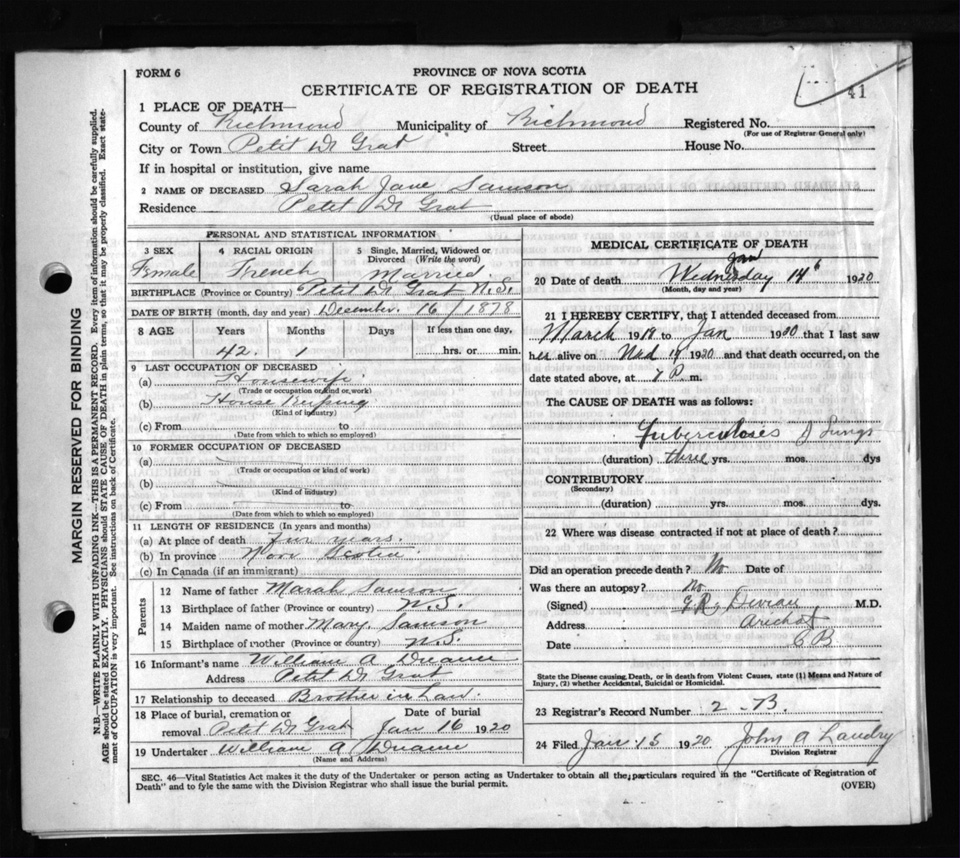 FORM 6
PROVINCE OF NOVA SCOTIA
CERTIFICATE OF REGISTRATION OF DEATH
41
1 PLACE OF DEATH—
County of Richmond Municipality of Richmond Registered No.
(For use of Registrar General only)
City or Town Petit De Grat Street House No.
If in hospital or institution, give name
2 NAME OF DECEASED Sarah Jane Samson
Residence Petit De Grat
(Usual place of abode)
PERSONAL AND STATISTICAL INFORMATION
3 SEX Female
4 RACIAL ORIGIN French
5 Single, Married, Widowed or Divorced (Write the word) Married.
BIRTHPLACE (Province or Country) Petit De Grat N.S.
DATE OF BIRTH (month, day and year) December. 16/1878
8 AGE Years Months Days If less than one day,
42. 1 hrs. or min.
9 LAST OCCUPATION OF DECEASED
(a) Housewife
(Trade or occupation or kind or work)
(b) House Keeping
(Kind of industry)
(c) From to
(Date from which to which so employed)
10 FORMER OCCUPATION OF DECEASED
(a)
(Trade or occupation or kind of work)
(b)
(Kind of industry)
(c) From to
(Date from which to which so employed)
11 LENGTH OF RESIDENCE (In years and months)
(a) At place of death years.
(b) In province Nova Scotia
(c) In Canada (if an immigrant)
Parents
12 Name of father Samson
13 Birthplace of father (Province or country) N.S.
14 Maiden name of mother Mary. Samson
15 Birthplace of mother (Province or country) N.S.
16 Informant's name William A
Address Petit De Grat
17 Relationship to deceased Brother in Law.
18 Place of burial, cremation or removal Petit De Grat Date of burial Jan 16 1920
19 Undertaker William A
(Name and Address)
MEDICAL CERTIFICATE OF DEATH
Jan
20 Date of death Wednesday 14th 1920
(Month, day and year)
21 I HEREBY CERTIFY, that I attended deceased from
March 1918 to Jan 1920 that I last saw
her alive on Wed 14 1920 and that death occurred, on the
date stated above, at 7 P. m.
The CAUSE OF DEATH was as follows:
Tuberculosis of Lungs
(duration) three yrs. mos. dys
CONTRIBUTORY
(Secondary)
(duration) yrs. mos. dys.
22 Where was disease contracted if not at place of death?
Did an operation precede death? No Date of
Was there an autopsy? No
(Signed) M.D.
Address Arichat
Date C B
State the Disease causing Death, or in death from Violent Causes, state (1) Means and Nature of Injury, (2) whether Accidental, Suicidal or Homicidal.
23 Registrar's Record Number 2 - B.
24 Filed Jan 15 1920 John A Landry
Division Registrar
SEC. 46—Vital Statistics Act makes it the duty of the Undertaker or person acting as Undertaker to obtain all the particulars required in the "Certificate of Registration of
Death" and to fyle the same with the Division Registrar who shall issue the burial permit.
(OVER)
MARGIN RESERVED FOR BINDING
N.B.—WRITE PLAINLY WITH UNFADING INK—THIS IS A PERMANENT RECORD. Every item of information should be carefully supplied.
AGE should be stated EXACTLY. PHYSICIANS should STATE CAUSE OF DEATH in plain terms, so that it may be properly classified. Exact statement of OCCUPATION is very important. See instructions on back of Certificate.